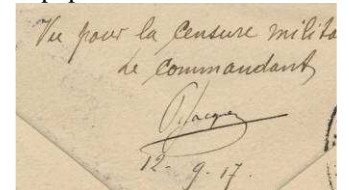 Vu pour la censure milita
Le commandant
Jacque
12 - 9 - 17.